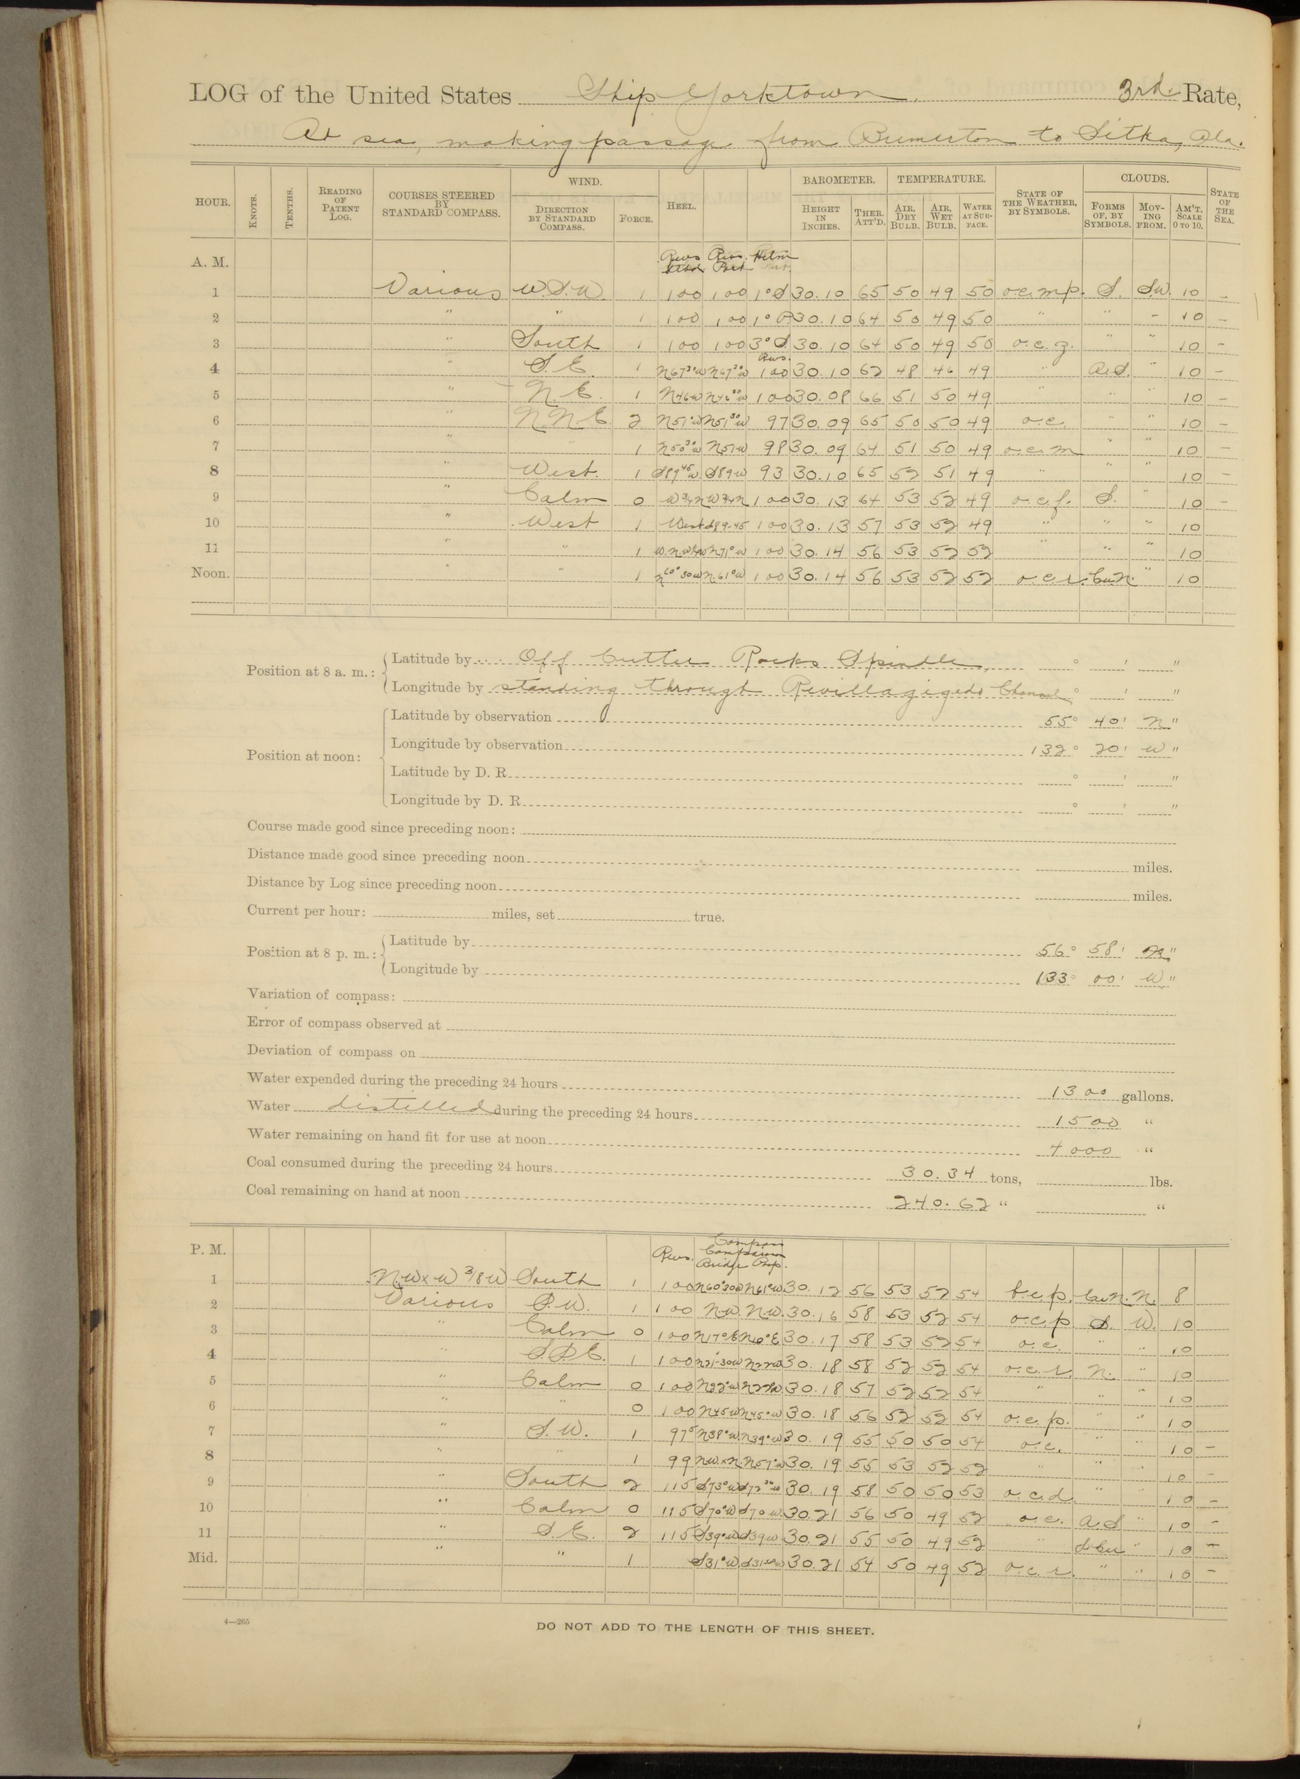 LOG of the United States Ship Yorktown. 3rd. Rate,
At sea, making passage from Bremerton to Sitka, Ala.
HOUR. KNOTS. TENTHS. READING OF PATENT LOG. COURSES STEERED BY STANDARD COMPASS. WIND. DIRECTION BY STANDARD COMPASS. FORCE. HEEL. BAROMETER. HEIGHT IN INCHES. THER. ATT'D. TEMPERATURE. AIR, DRY BULB. AIR, WET BULB. WATER AT SURFACE. STATE OF THE WEATHER, BY SYMBOLS. CLOUDS. FORMS OF, BY SYMBOLS. MOVING FROM. AM'T. SCALE 0 TO 10. STATE OF THE SEA.
A. M. Revs Stbd Revs. Port Helm
1 Various W.S.W. 1 100 100 1° S 30.10 65 50 49 50 o.c.m.p. S. S.W. 10 -
2 " " 1 100 100 1° P 30.10 64 50 49 50 " " - 10 -
3 " South 1 100 100 3° S. 30.10 64 50 49 50 o.c.g. " " 10 -
Revs.
4 " S.E. 1 N67°W 100 30.10 62 48 46 49 " A.S. " 10 -
5 " N.E. 1 N46W 100 30.08 66 51 50 49 " " " 10 -
6 " N.N.E. 2 N51°W 97 30.09 65 50 50 49 o.c. " " 10 -
7 " " 1 N51W 98 30.09 64 51 50 49 o.c.m " " 10 -
8 " West. 1 S89W 93 30.10 65 52 51 49 " " " 10 -
9 " Calm 0 100 30.13 64 53 52 49 o.c.f. S. " 10 -
10 " West 1 West S89-45 100 30.13 57 53 52 49 " " " 10
11 " " 1 N71°W 100 30.14 56 53 52 52 " " " 10
Noon. " " 1 N60°30W N.61°W 100 30.14 56 53 52 52 o.c.r. Cu.N. " 10
Position at 8 a. m.: Latitude by Off Cutter Rocks Spindle, ° ' "
Longitude by standing through Revillagigedo Channel ° ' "
Position at noon: Latitude by observation 55° 40' N "
Longitude by observation 132° 20' W "
Latitude by D. R. ° ' "
Longitude by D. R. ° ' "
Course made good since preceding noon:
Distance made good since preceding noon miles.
Distance by Log since preceding noon miles.
Current per hour: miles, set true.
Position at 8 p. m.: Latitude by 56° 58' N "
Longitude by 133° 00' W "
Variation of compass:
Error of compass observed at
Deviation of compass on
Water expended during the preceding 24 hours 1300 gallons.
Water distilled during the preceding 24 hours 1500 "
Water remaining on hand fit for use at noon 4000 "
Coal consumed during the preceding 24 hours 30.34 tons, lbs.
Coal remaining on hand at noon 240.62 " "
P. M. Revs. Compass Comparison Bridge Poop.
1 N.W x W 3/8 W South 1 100 N60°30W N61°W 30.12 56 53 52 54 b.c.p. Cu.N. N. 8
2 Various S.W. 1 100 N.W. N.W. 30.16 58 53 52 54 o.c.p. S. W. 10
3 " Calm 0 100 N17°E N16°E 30.17 58 53 52 54 o.c. " " 10
4 " S.S.E. 1 100 N21-30W N22W 30.18 58 52 52 54 o.c.r. N. " 10
5 " Calm 0 100 N22°W N22W 30.18 57 52 52 54 " " " 10
6 " " 0 100 N45W N45°W 30.18 56 52 52 54 o.c.p. " " 10
7 " S.W. 1 97⁵ N38°W N39°W 30.19 55 50 50 54 o.c. " " 10 -
8 " " 1 99 NW x N. N57°W 30.19 55 53 52 52 " " " 10 -
9 " South 2 115 S73°W S72°W 30.19 58 50 50 53 o.c.d. " " 10 -
10 " Calm 0 115 S70°W S70W. 30.21 56 50 49 52 o.c. A.S " 10 -
11 " S.E. 2 115 S39°W S39W 30.21 55 50 49 52 " S.Cu " 10 -
Mid. " " 1 S31°W 30.21 54 50 49 52 o.c.r. " " 10 -
4—265
DO NOT ADD TO THE LENGTH OF THIS SHEET.